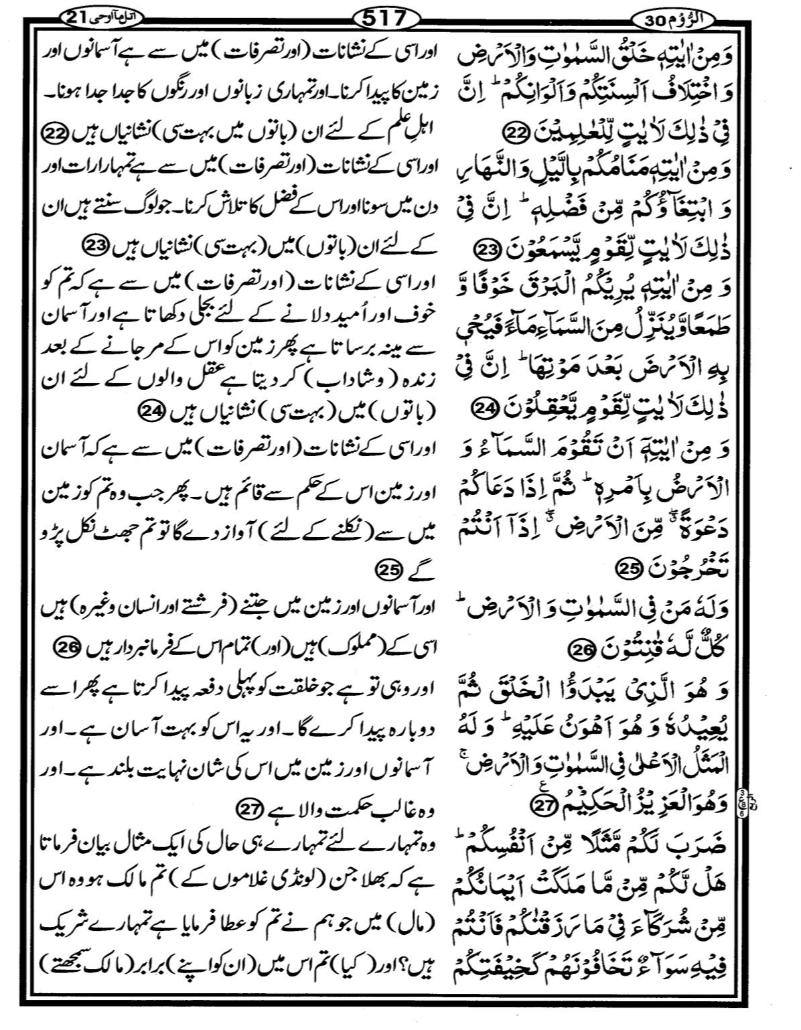 الرُّوْم 30
517
اتل مآ اوحی 21
وَ مِنْ اٰيٰتِهٖ خَلْقُ السَّمٰوٰتِ وَالْاَرْضِ
وَ اخْتِلَافُ اَلْسِنَتِكُمْ وَاَلْوَانِكُمْ ؕ اِنَّ
فِيْ ذٰلِكَ لَاٰيٰتٍ لِّلْعٰلِمِيْنَ 22
وَ مِنْ اٰيٰتِهٖ مَنَامُكُمْ بِالَّيْلِ وَالنَّهَارِ
وَ ابْتِغَآؤُكُمْ مِّنْ فَضْلِهٖ ؕ اِنَّ فِيْ
ذٰلِكَ لَاٰيٰتٍ لِّقَوْمٍ يَّسْمَعُوْنَ 23
وَ مِنْ اٰيٰتِهٖ يُرِيْكُمُ الْبَرْقَ خَوْفًا وَّ
طَمَعًا وَّيُنَزِّلُ مِنَ السَّمَآءِ مَآءً فَيُحْيٖ
بِهِ الْاَرْضَ بَعْدَ مَوْتِهَا ؕ اِنَّ فِيْ
ذٰلِكَ لَاٰيٰتٍ لِّقَوْمٍ يَّعْقِلُوْنَ 24
وَ مِنْ اٰيٰتِهٖۤ اَنْ تَقُوْمَ السَّمَآءُ وَ
الْاَرْضُ بِاَمْرِهٖ ؕ ثُمَّ اِذَا دَعَاكُمْ
دَعْوَةً ۖ مِّنَ الْاَرْضِ ۖ اِذَاۤ اَنْتُمْ
تَخْرُجُوْنَ 25
وَلَهٗ مَنْ فِي السَّمٰوٰتِ وَ الْاَرْضِ ؕ
كُلٌّ لَّهٗ قٰنِتُوْنَ 26
وَ هُوَ الَّذِيْ يَبْدَؤُا الْخَلْقَ ثُمَّ
يُعِيْدُهٗ وَ هُوَ اَهْوَنُ عَلَيْهِ ؕ وَ لَهُ
الْمَثَلُ الْاَعْلٰى فِي السَّمٰوٰتِ وَالْاَرْضِ ۚ
وَهُوَ الْعَزِيْزُ الْحَكِيْمُ 27 ع
ضَرَبَ لَكُمْ مَّثَلًا مِّنْ اَنْفُسِكُمْ ؕ
هَلْ لَّكُمْ مِّنْ مَّا مَلَكَتْ اَيْمَانُكُمْ
مِّنْ شُرَكَآءَ فِيْ مَا رَزَقْنٰكُمْ فَاَنْتُمْ
فِيْهِ سَوَآءٌ تَخَافُوْنَهُمْ كَخِيْفَتِكُمْ
اور اسی کے نشانات (اور تصرفات) میں سے ہے آسمانوں اور
زمین کا پیدا کرنا۔ اور تمہاری زبانوں اور رنگوں کا جدا جدا ہونا۔
اہلِ علم کے لئے ان (باتوں میں بہت سی) نشانیاں ہیں 22
اور اسی کے نشانات (اور تصرفات) میں سے ہے تمہارا رات اور
دن میں سونا اور اس کے فضل کا تلاش کرنا۔ جو لوگ سنتے ہیں ان
کے لئے ان (باتوں) میں (بہت سی) نشانیاں ہیں 23
اور اسی کے نشانات (اور تصرفات) میں سے ہے کہ تم کو
خوف اور اُمید دلانے کے لئے بجلی دکھاتا ہے اور آسمان
سے مینہ برساتا ہے پھر زمین کو اس کے مر جانے کے بعد
زندہ (و شاداب) کر دیتا ہے عقل والوں کے لئے ان
(باتوں) میں (بہت سی) نشانیاں ہیں 24
اور اسی کے نشانات (اور تصرفات) میں سے ہے کہ آسمان
اور زمین اس کے حکم سے قائم ہیں۔ پھر جب وہ تم کو زمین
میں سے (نکلنے کے لئے) آواز دے گا تو تم جھٹ نکل پڑو
گے 25
اور آسمانوں اور زمین میں جتنے (فرشتے اور انسان وغیرہ) ہیں
اسی کے (مملوک) ہیں (اور) تمام اس کے فرمانبردار ہیں 26
اور وہی تو ہے جو خلقت کو پہلی دفعہ پیدا کرتا ہے پھر اسے
دوبارہ پیدا کرے گا۔ اور یہ اس کو بہت آسان ہے۔ اور
آسمانوں اور زمین میں اس کی شان نہایت بلند ہے۔ اور
وہ غالب حکمت والا ہے 27
وہ تمہارے لئے تمہارے ہی حال کی ایک مثال بیان فرماتا
ہے کہ بھلا جن (لونڈی غلاموں کے) تم مالک ہو وہ اس
(مال) میں جو ہم نے تم کو عطا فرمایا ہے تمہارے شریک
ہیں؟ اور (کیا) تم اس میں (ان کو اپنے) برابر (مالک سمجھتے)